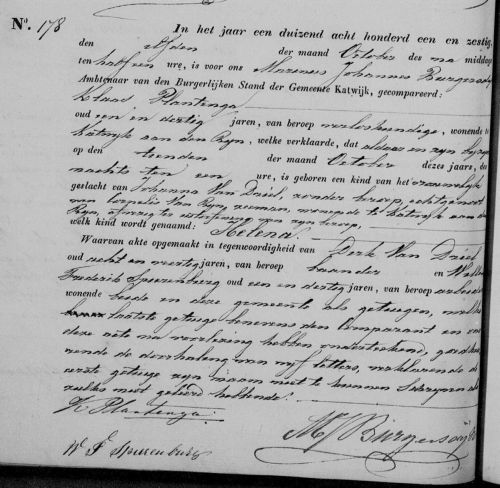 No. 178
In het jaar een duizend acht honderd een en zestig,
den elfden der maand October des na middag
ten half een ure, is voor ons Marinus Johannes Burgersdijk
Ambtenaar van den Burgerlijken Stand der Gemeente Katwijk, gecompareerd:
Klaas Plantenga
oud een en dertig jaren, van beroep verloskundige, wonende te
Katwijk aan den Ryn, welke verklaarde, dat aldaar en zyn byzyn
op den tienden der maand October dezes jaars, des
nachts ten een ure, is geboren een kind van het vrouwelyk
geslacht van Johanna Van Driel, zonder beroep, echtgenoot
van Cornelis Van Ryn zeeman, wonende te Katwyk aan den
Ryn, afwezig ter uitoefening van zyn beroep,
welk kind wordt genaamd: Helena.
Waarvan akte opgemaakt in tegenwoordigheid van Dirk Van Driel
oud acht en veertig jaren, van beroep en Willem
Frederik Spuerenburg oud een en dertig jaren, van beroep arbeider
wonende beide in deze gemeente als getuigen, welke
laatste getuige benevens den Comparant en ons
deze acte na voorlezing hebben onderteekend, goedkeu
rende de doorhaling van vyf letters, verklarende de
eerste getuige zyn naam niet te kunnen schryven als
zulks niet geleerd hebbende.
K Plantenga.
M J Burgersdijk
W. F. Spuerenburg